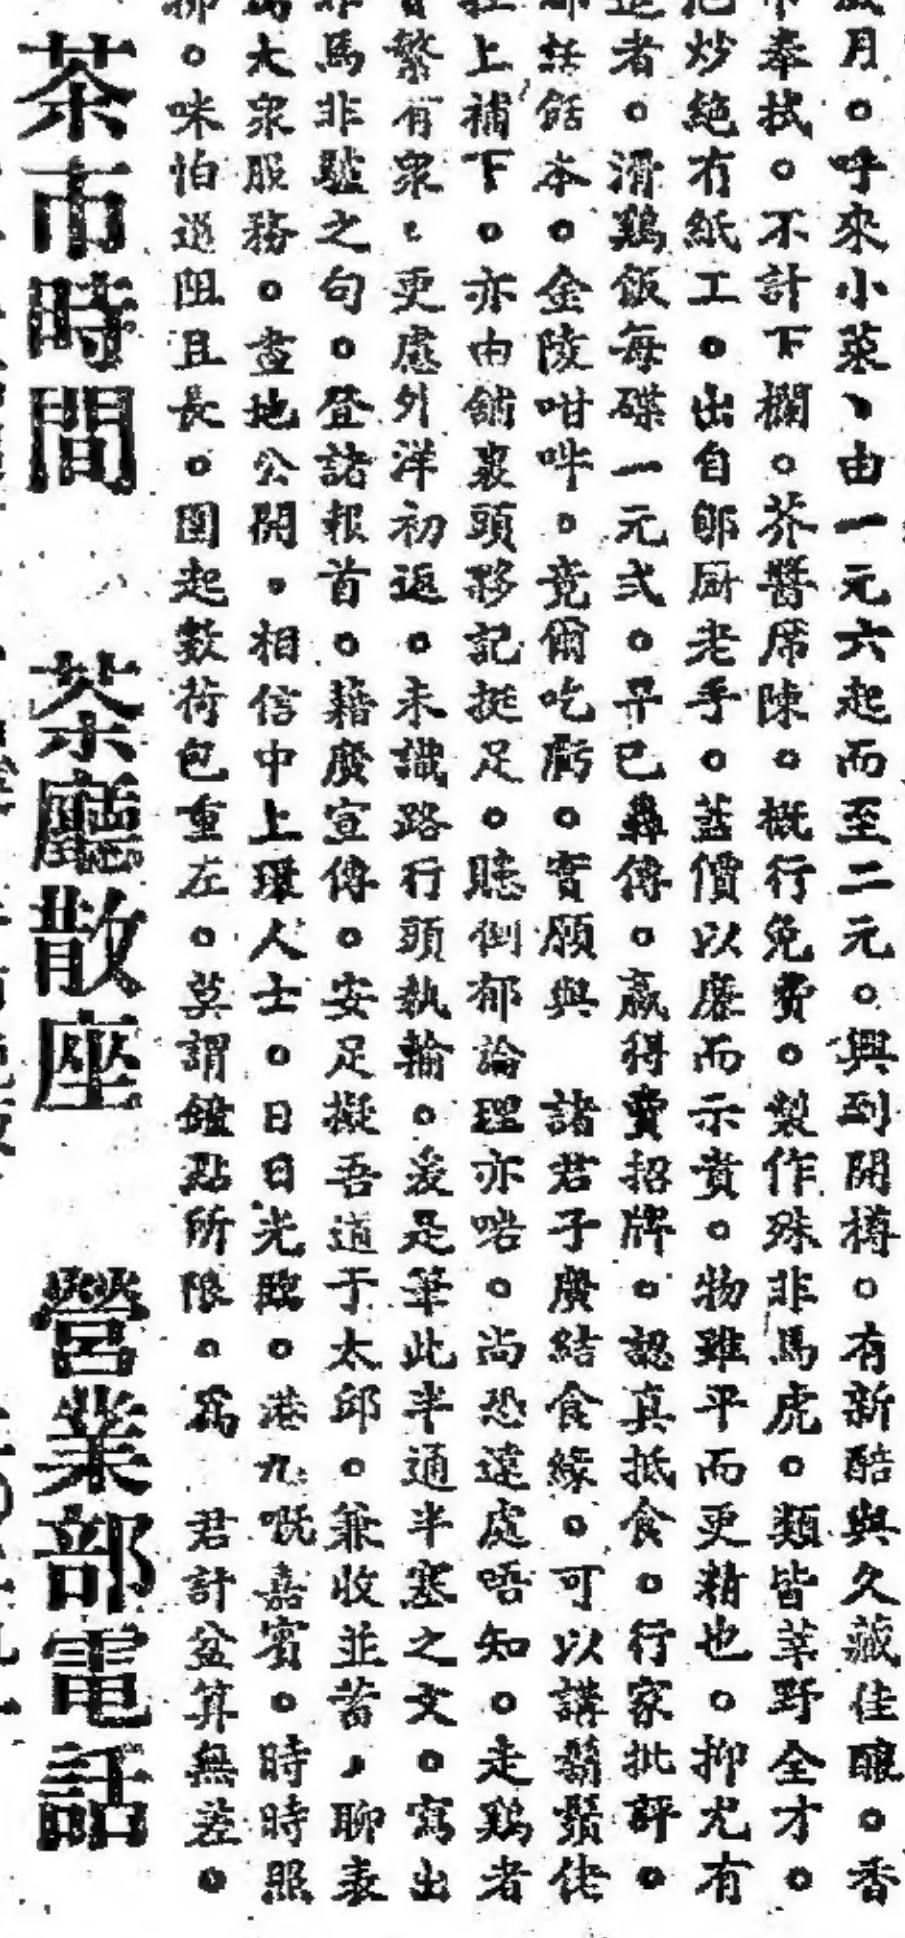 月。呼來小菜、由一元六起而至二元。興到開樽。有新醅與久藏佳釀。香
奉拭。不計下欄。芥醬席陳。概行免費。製作殊非馬虎。類皆葷野全才。
炒絕冇紙工。出自郇厨老手。蓋價以廉而示賁。物雖平而更精也。抑尤有
者。滑鷄飯每碟一元弍。早已轟傳。贏得費招牌。認真抵食。行家批評。
話餂本。金陵咁呠。竟爾吃虧。實願與 諸君子廣結食緣。可以講鬍鬚佬
上補下。亦由舖裏頭夥記挺足。賍倒郁論理亦啱。尚恐遠處唔知。走鷄者
繁有衆。更慮外洋初返。未識路行頭執輸。爰是筆此半通半塞之文。寫出
馬非驢之句。登諸報首。藉廣宣傳。安足擬吾道于太邱。兼收並蓄，聊表
大衆服務。晝地公開。相信中上環人士。日日光臨。港九嘅嘉賓。時時照
。咪怕道阻且長。圍起數荷包重左。莫謂鐘點所限。爲 君計盆算無差。
茶市時間 茶廳散座 營業部電話